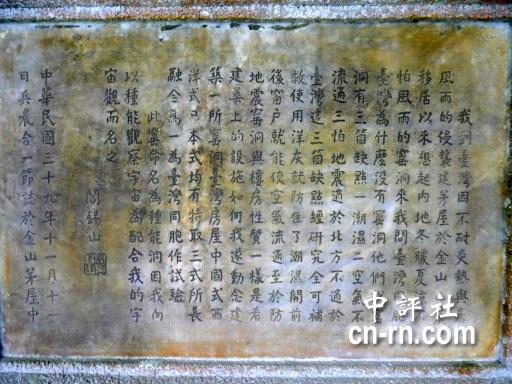 我到臺灣因不耐炎熱與
風雨的侵襲建茅屋於金山
移居以來想起內地冬暖夏涼
怕風雨的窰洞來我問臺灣
臺灣為什麼沒有窰洞他們
洞有三箇缺點一潮濕二空氣不
流通三怕地震適於北方不適於
臺灣這三箇缺點經研究全可補
救使用洋灰就防住了潮濕開前
後窗戶就能使空氣流通至於防
地震窰洞與樓房性質一樣是看
建築上的設施如何我遂動念建
築一所窰洞臺灣房屋中國式西
洋式日本式均有特取三式所長
融合為一為臺灣同胞作試驗
此窰命名為種能洞因我向
以種能觀察宇宙為配合我的宇
宙觀而名之
閻錫山
中華民國三十九年十一月十一
日兵農合一節誌於金山茅屋中
中評社
cn-rn.com